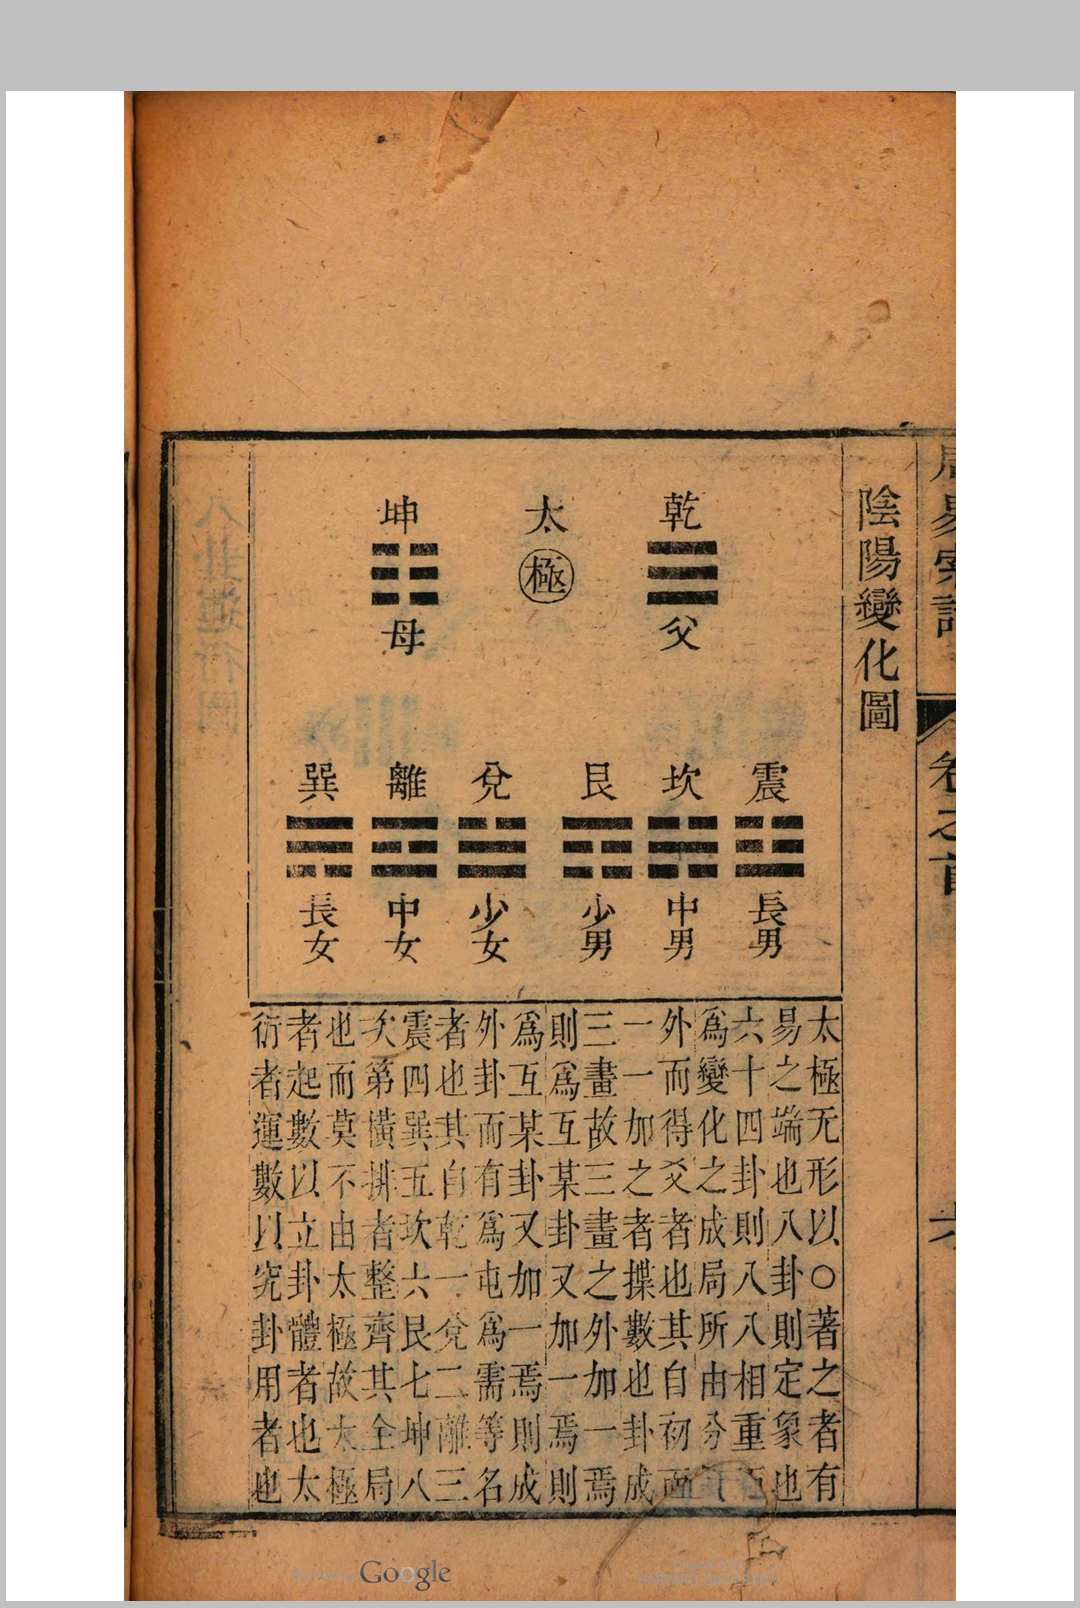 周易索詁
卷之首
陰陽變化圖
乾
父
太
極
坤
母
震
長男
坎
中男
艮
少男
兌
少女
離
中女
巽
長女
太極无形以○著之者有
易之端也八卦則定象也
六十四卦則八八相重
爲變化之成局所由分
外而得爻者也其自初
一一加之者揲數也卦成
三畫故三畫之外加一焉
則爲互某卦又加一焉則
爲互某卦又加一焉則成
外卦而有爲屯爲需等名
者也其自乾一兌二離三
震四巽五坎六艮七坤八
次第橫排者整齊其全局
也而莫不由太極故太極
者起數以立卦體者也太
衍者運數以究卦用者也
Google